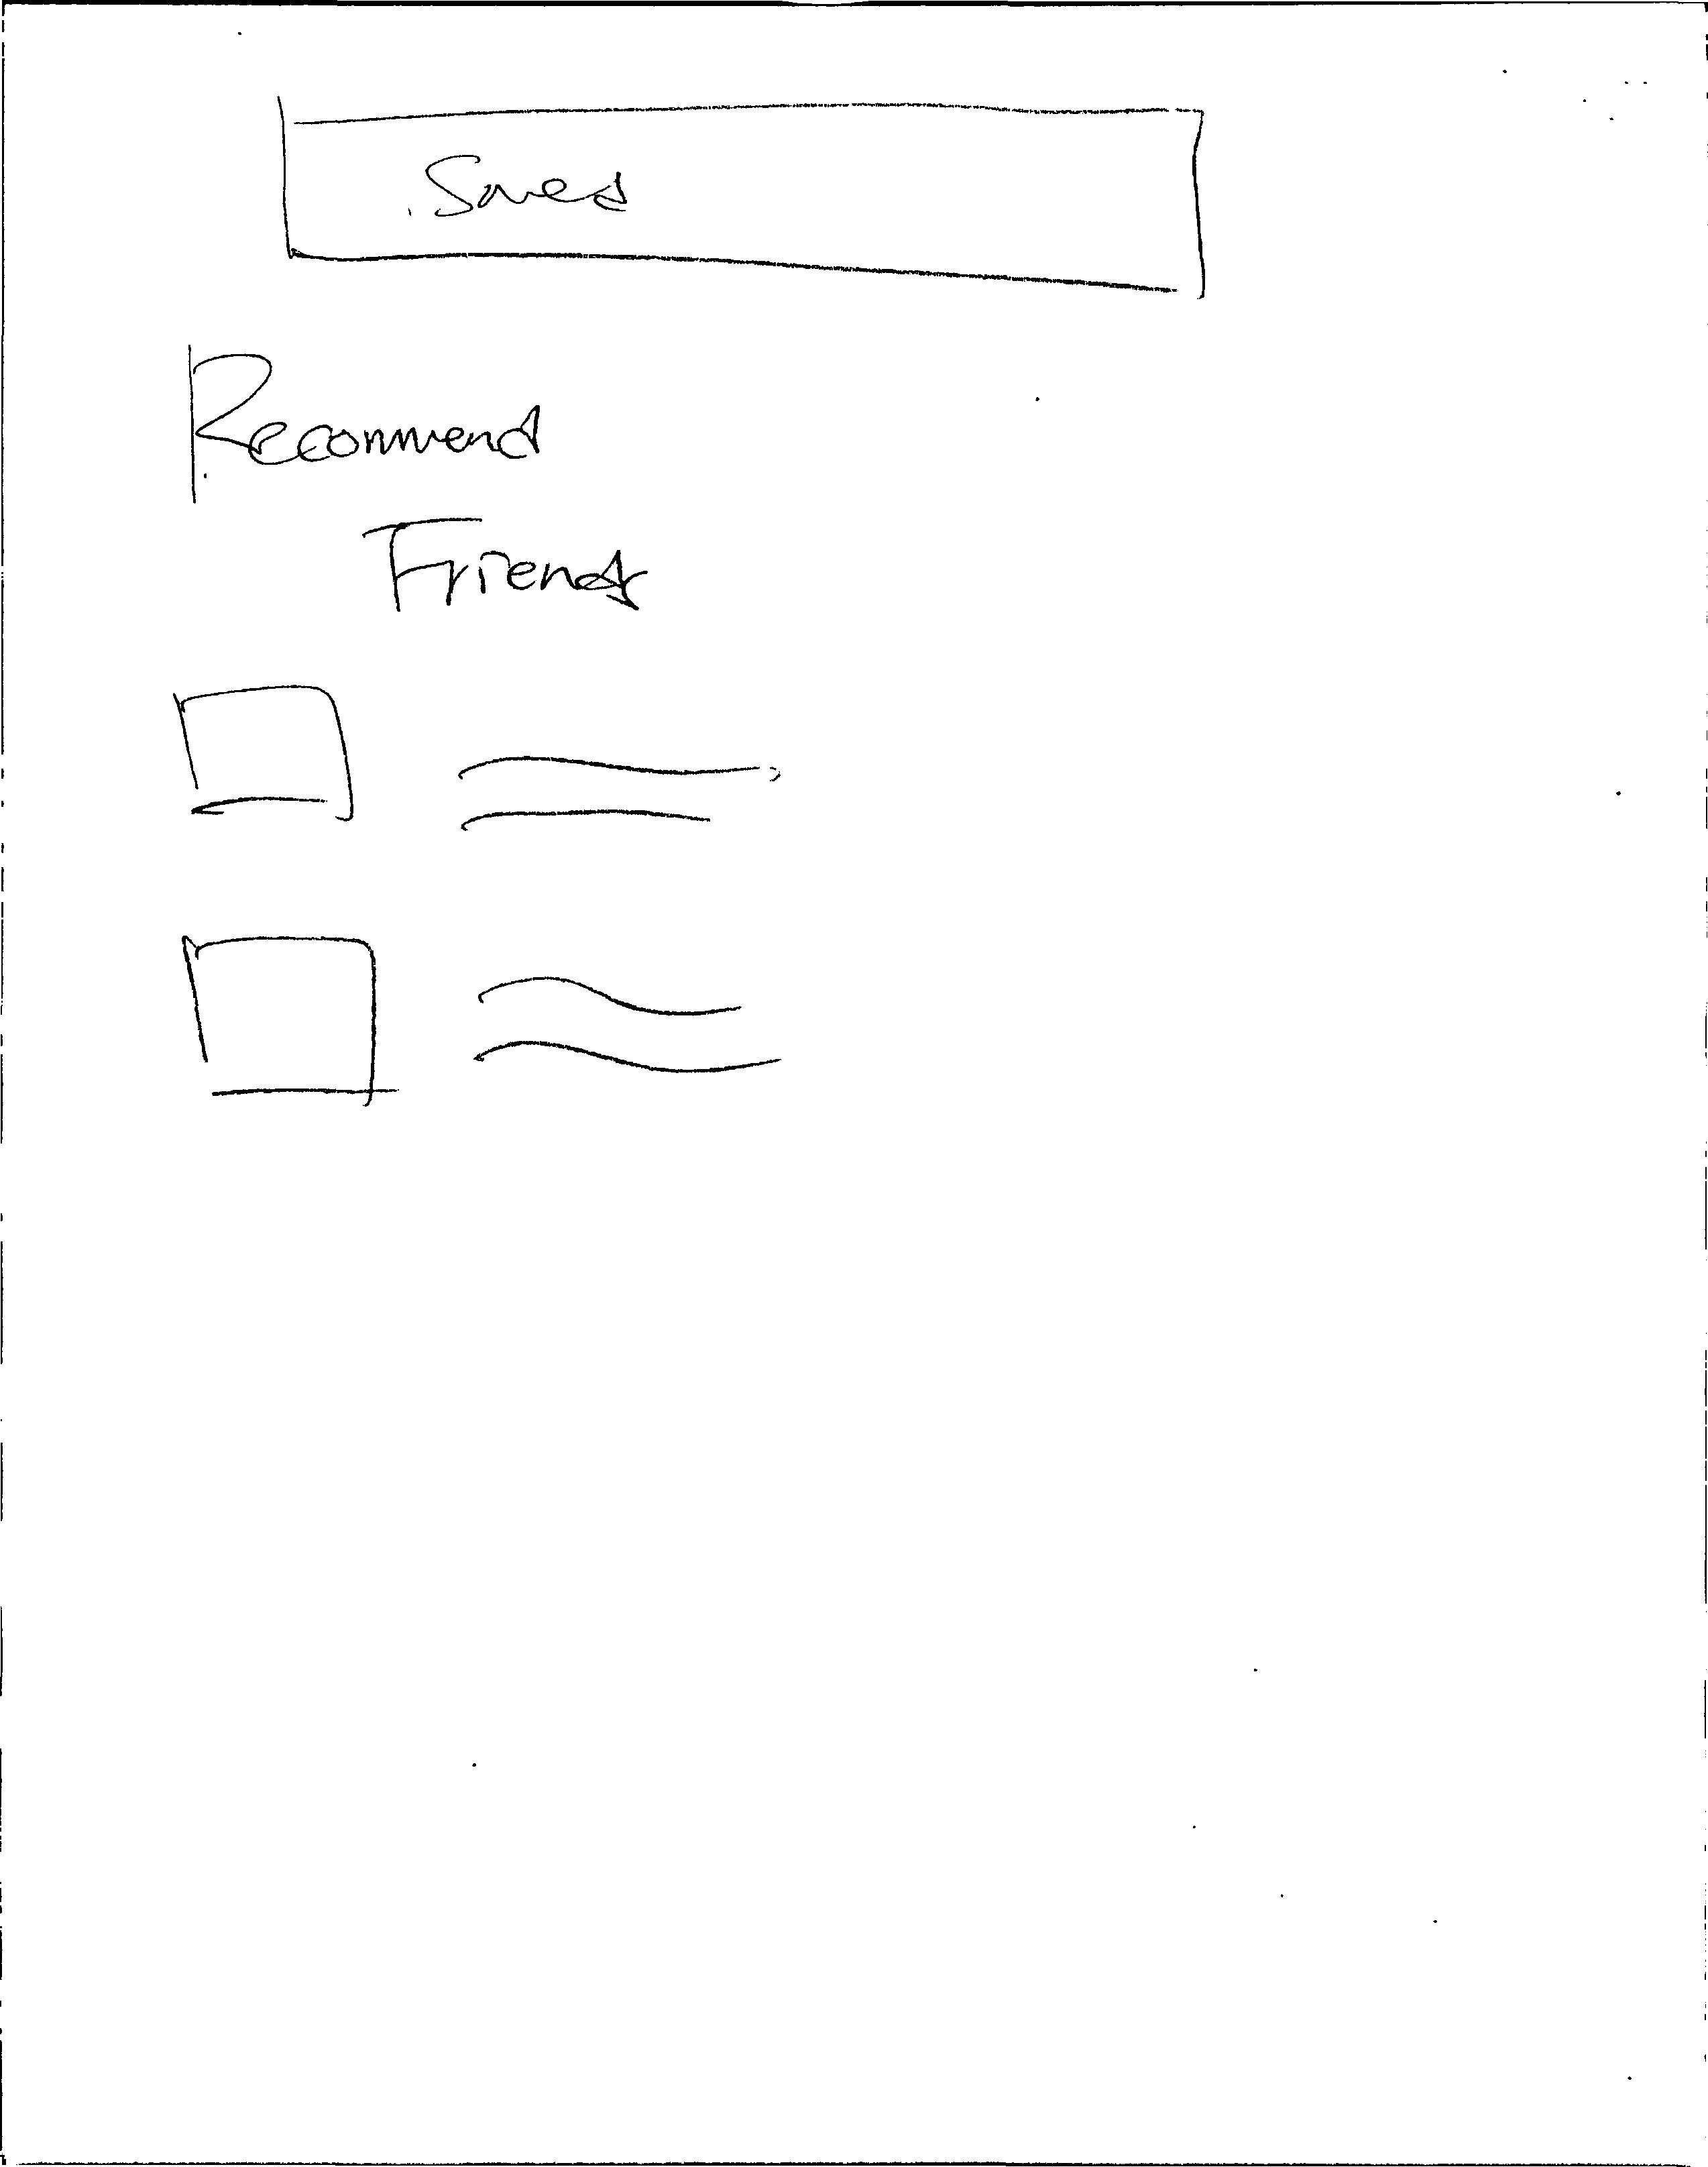 Saved
Recommend
Friends